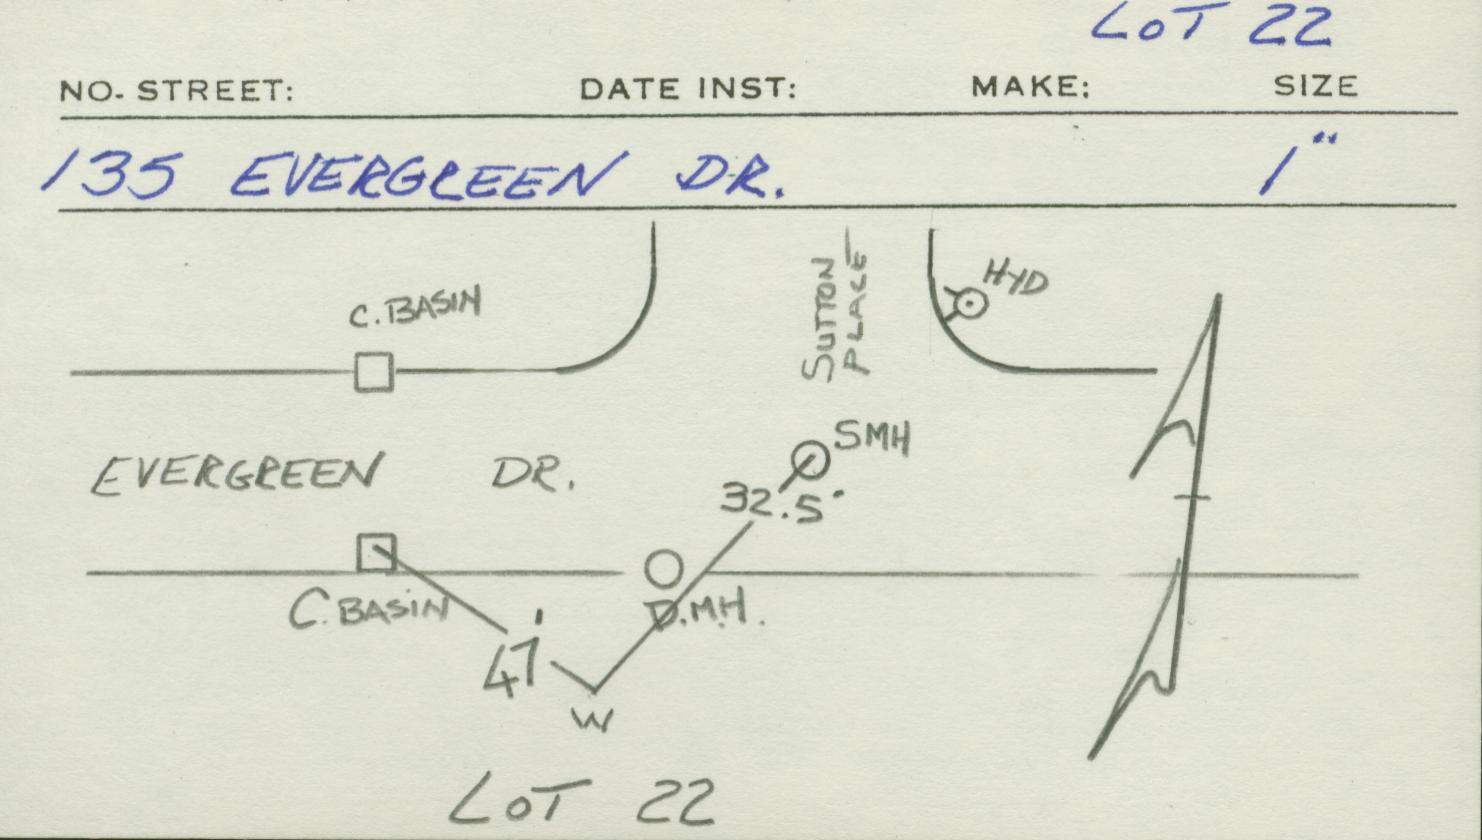 LOT 22
NO. STREET: DATE INST: MAKE: SIZE
135 EVERGREEN DR. 1"
C. BASIN
SUTTON
PLACE
HYD
SMH
EVERGREEN DR.
32.5'
C. BASIN
D.M.H.
47'
W
LOT 22